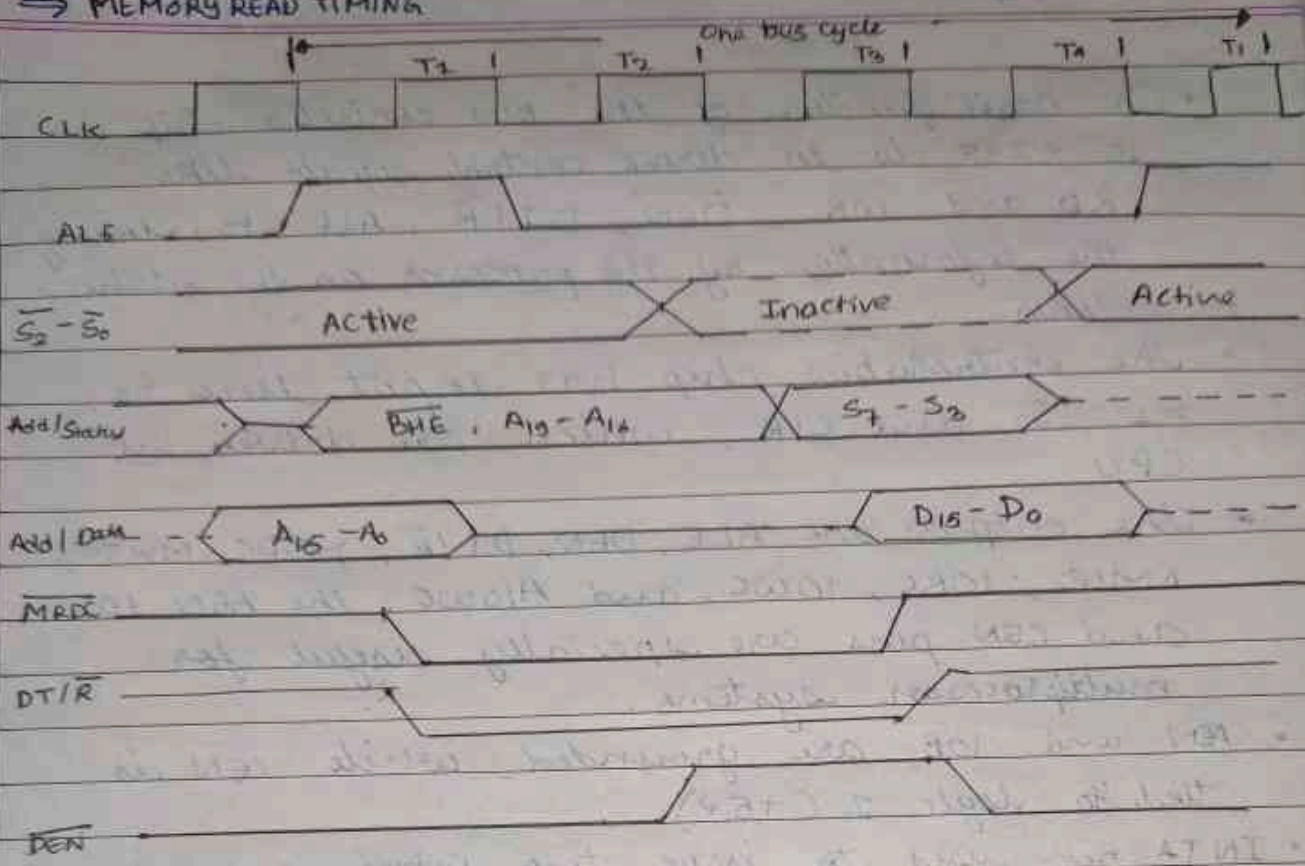 ⇒ MEMORY READ TIMING
One bus cycle
T1 T2 T3 T4 T1
CLK
ALE
S̅₂ - S̅₀ Active Inactive Active
Add/Status B̅H̅E̅, A₁₉ - A₁₆ S₇ - S₃
Add/Data A₁₅ - A₀ D₁₅ - D₀
M̅R̅D̅C̅
DT/R̅
D̅E̅N̅